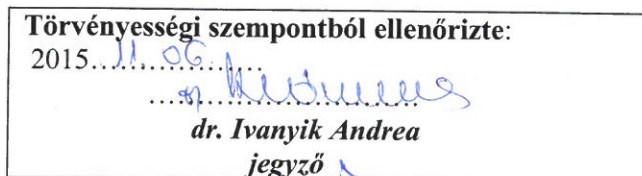 Törvényességi szempontból ellenőrizte:
2015...11.06...........
...............................
dr. Ivanyik Andrea
jegyző